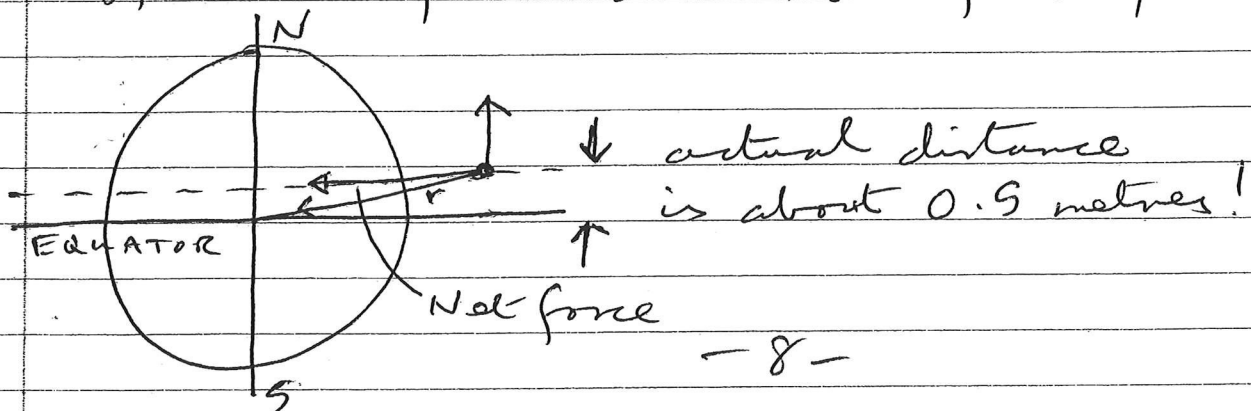 N
actual distance
r
is about 0.5 metres!
EQUATOR
Net force
- 8 -
S